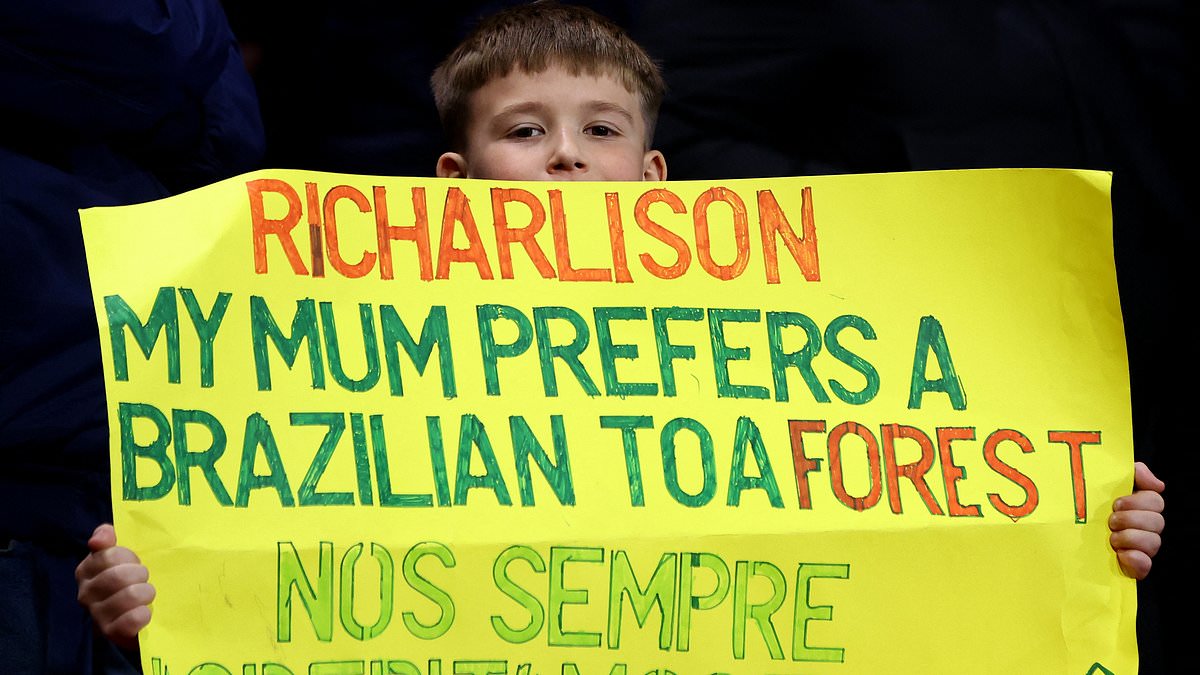 RICHARLISON
MY MUM PREFERS A
BRAZILIAN TO A FOREST
NOS SEMPRE